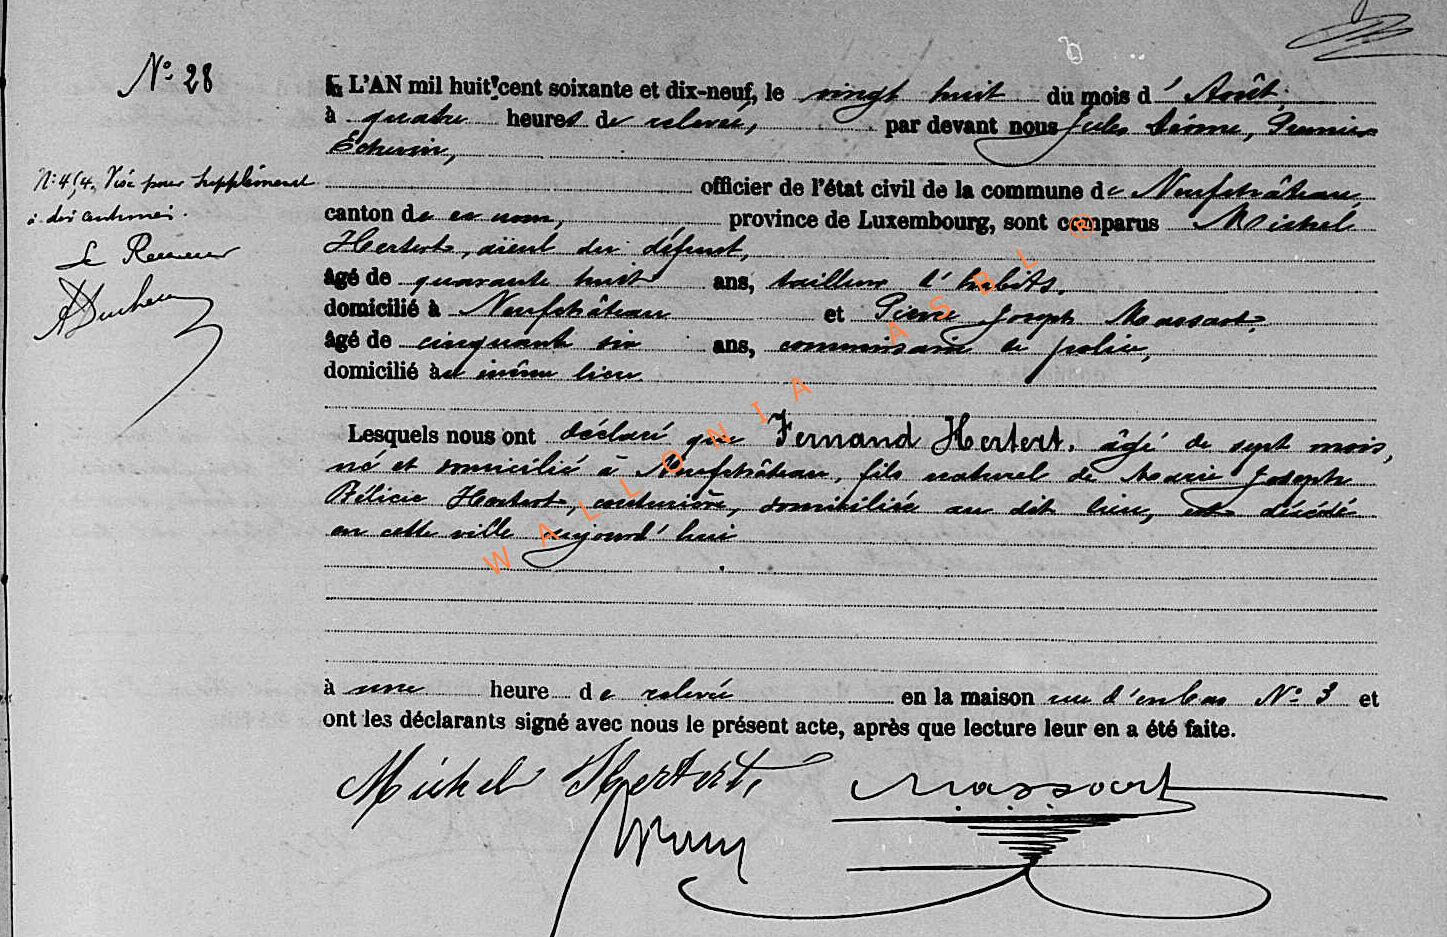 N° 28
L'AN mil huit cent soixante et dix-neuf, le vingt huit du mois d'Août,
à quatre heures de relevée, par devant nous Jules , Premier
Echevin,
officier de l'état civil de la commune de Neufchâteau
canton de ce nom, province de Luxembourg, sont comparus Michel
Hertert, aïeul du défunt,
âgé de quarante huit ans, tailleur d'habits,
domicilié à Neufchâteau et Pierre Joseph Massart,
âgé de cinquante six ans, commissaire de police,
domicilié à même lieu.
Lesquels nous ont déclaré que Fernand Hertert, âgé de sept mois,
né et domicilié à Neufchâteau, fils naturel de Marie Josephe
Félicie Hertert, couturière, domiciliée au dit lieu, est décédé
en cette ville aujourd'hui
à une heure de relevée en la maison rue d'enbas N° 3 et
ont les déclarants signé avec nous le présent acte, après que lecture leur en a été faite.
Michel Hertert, Massart
Visé pour supplément
Le Receveur
WALLONIA ASBL ®